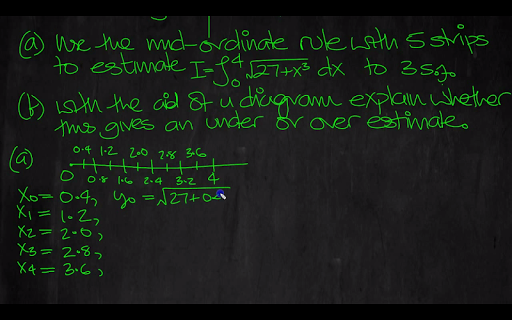 (a) Use the mid-ordinate rule with 5 strips
to estimate I = ∫₀⁴ √27+x³ dx to 3 s.f.
(b) with the aid of a diagram explain whether
this gives an under or over estimate.
(a)
0.4 1.2 2.0 2.8 3.6
0 0.8 1.6 2.4 3.2 4
x0 = 0.4, y0 = √27+0.4
x1 = 1.2,
x2 = 2.0,
x3 = 2.8,
x4 = 3.6,